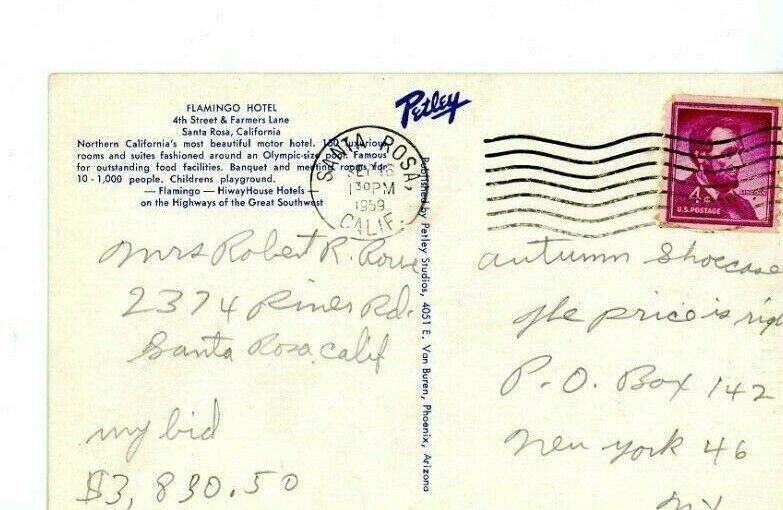 FLAMINGO HOTEL
4th Street & Farmers Lane
Santa Rosa, California
Northern California's most beautiful motor hotel. 150 luxurious
rooms and suites fashioned around an Olympic-size pool. Famous
for outstanding food facilities. Banquet and meeting rooms for
10 - 1,000 people. Childrens playground.
— Flamingo — HiwayHouse Hotels —
on the Highways of the Great Southwest
Petley
SANTA ROSA,
1 30 PM
1959
CALIF.
LINCOLN
4¢
U.S. POSTAGE
Published by Petley Studios, 4051 E. Van Buren, Phoenix, Arizona
Mrs Robert R.
2374 Rd.
Santa Rosa. Calif
my bid
$3,830.50
autumn Shoccase
The price is rig
P.O. Box 142
New york 46
NY